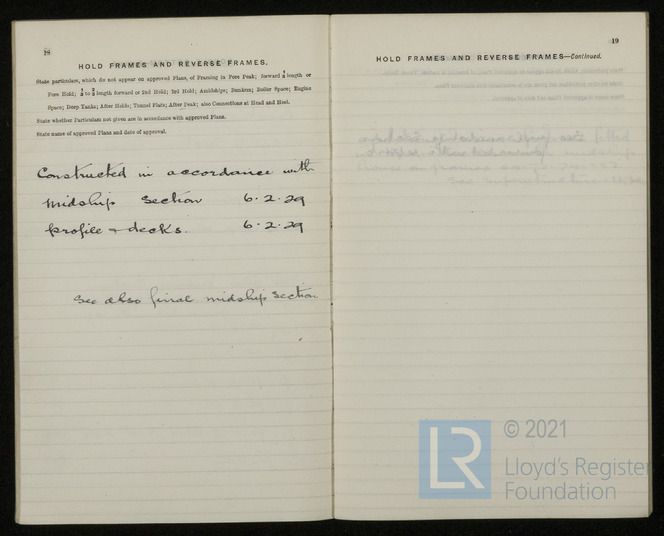 18
HOLD FRAMES AND REVERSE FRAMES.
State particulars, which do not appear on approved Plans, of Framing in Fore Peak; forward ¼ length or
Fore Hold; ¼ to ⅜ length forward or 2nd Hold; 3rd Hold; Amidships; Bunkers; Boiler Space; Engine
Space; Deep Tanks; After Holds; Tunnel Flats; After Peak; also Connections at Head and Heel.
State whether Particulars not given are in accordance with approved Plans.
State name of approved Plans and date of approval.
Constructed in accordance with
midship section 6.2.29
profile + decks. 6.2.29
See also final midship section
19
HOLD FRAMES AND REVERSE FRAMES—Continued.
LR
© 2021
Lloyd's Register
Foundation